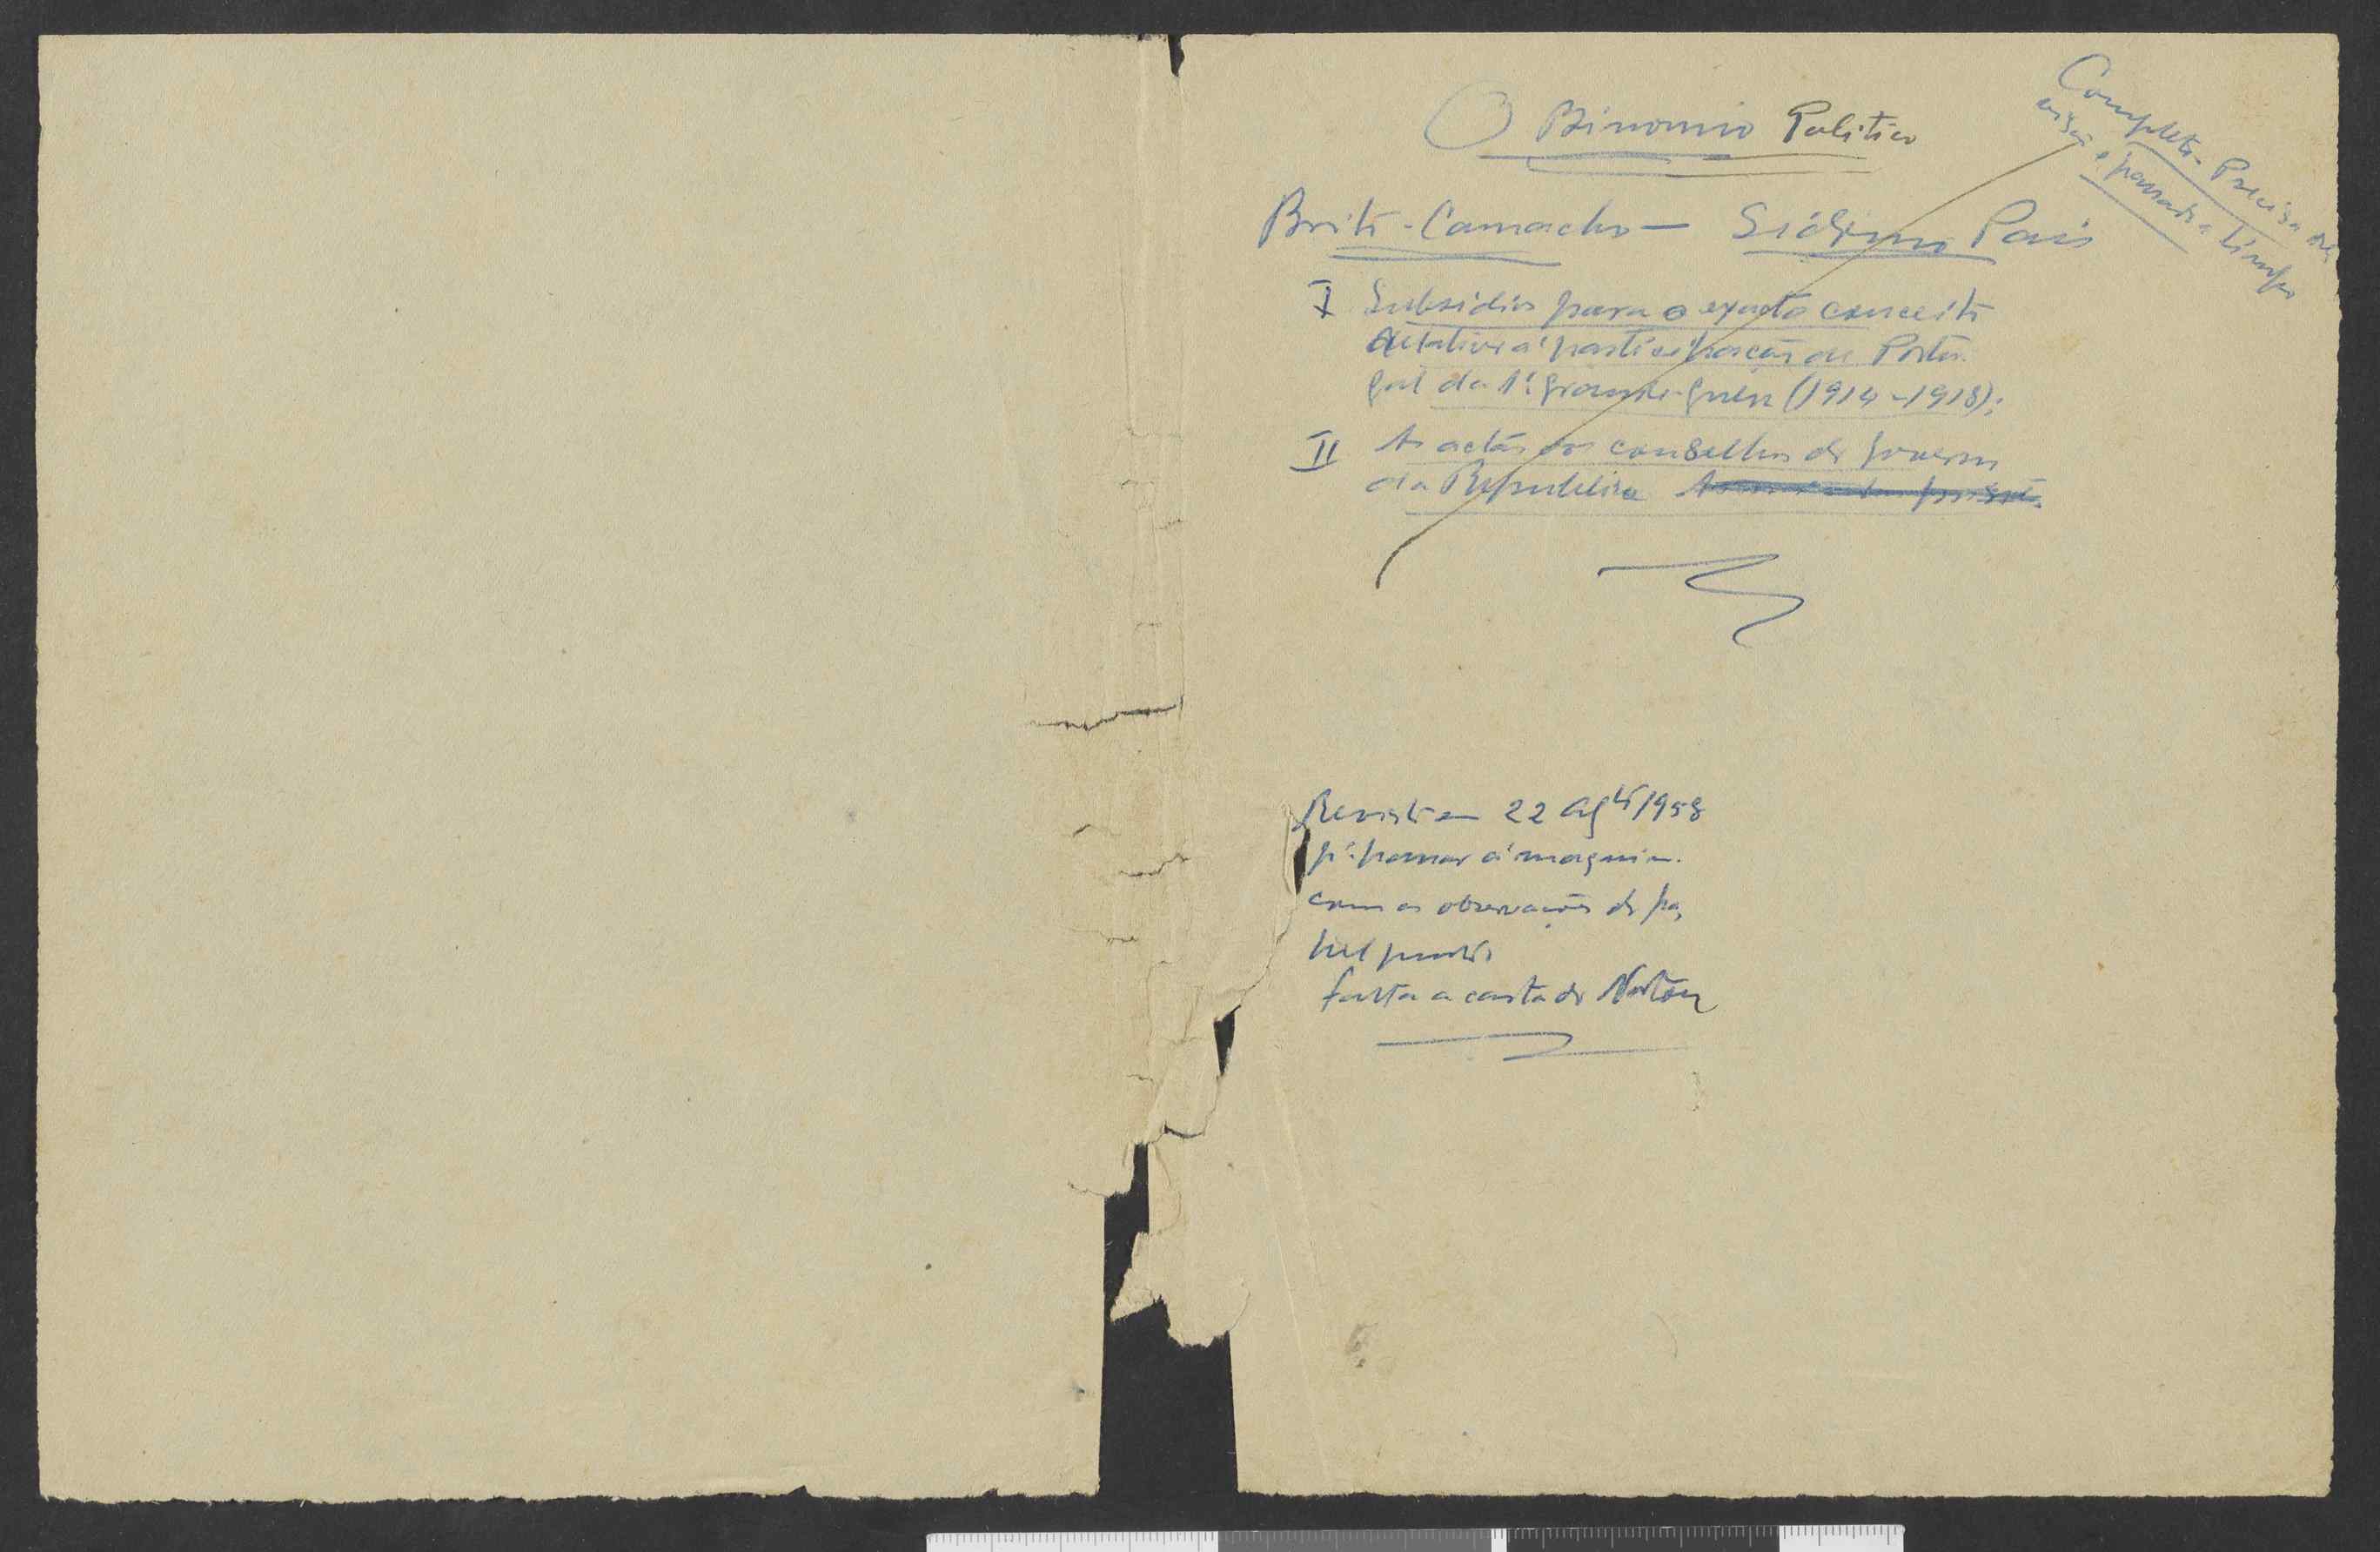 O Binomio Politico
Completo - Precisa re
visão e passado a limpo
Brito-Camacho — Sidónio Pais
I Subsidios para o exacto conceito
relativo á participação de Portu-
gal da 1ª grande-guerra (1914-1918);
II As actas dos conselhos de governo
da Republica
Revisto em 22 Agto/1958
pª. passar á maquina.
com as observações de pa,
pel junto
falta a carta do Norton